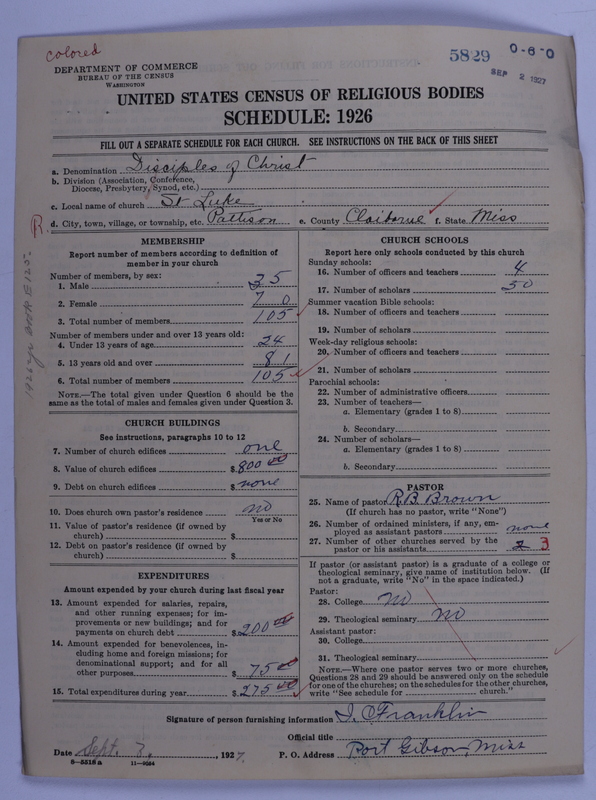 colored
5829
0-6-0
SEP 2 1927
DEPARTMENT OF COMMERCE
BUREAU OF THE CENSUS
WASHINGTON
UNITED STATES CENSUS OF RELIGIOUS BODIES
SCHEDULE: 1926
FILL OUT A SEPARATE SCHEDULE FOR EACH CHURCH. SEE INSTRUCTIONS ON THE BACK OF THIS SHEET
a. Denomination Disciples of Christ
b. Division (Association, Conference,
Diocese, Presbytery, Synod, etc.)
c. Local name of church St Luke
R. d. City, town, village, or township, etc. Pattison e. County Claiborne f. State Miss
MEMBERSHIP
Report number of members according to definition of
member in your church
Number of members, by sex:
1. Male 35
2. Female 70
3. Total number of members 105
Number of members under and over 13 years old:
4. Under 13 years of age 24
5. 13 years old and over 81
6. Total number of members 105
NOTE.—The total given under Question 6 should be
same as the total of males and females given under Question 3.
CHURCH BUILDINGS
See instructions, paragraphs 10 to 12
7. Number of church edifices one
8. Value of church edifices $ 800 00
9. Debt on church edifices $ none
10. Does church own pastor's residence no
Yes or No
11. Value of pastor's residence (if owned by
church) $
12. Debt on pastor's residence (if owned by
church) $
EXPENDITURES
Amount expended by your church during last fiscal year
13. Amount expended for salaries, repairs,
and other running expenses; for im-
provements or new buildings; and for
payments on church debt $ 200 00
14. Amount expended for benevolences, in-
cluding home and foreign missions; for
denominational support; and for all
other purposes $ 75 00
15. Total expenditures during year $ 275 00
CHURCH SCHOOLS
Report here only schools conducted by this church
Sunday schools:
16. Number of officers and teachers 4
17. Number of scholars 50
Summer vacation Bible schools:
18. Number of officers and teachers
19. Number of scholars
Week-day religious schools:
20. Number of officers and teachers
21. Number of scholars
Parochial schools:
22. Number of administrative officers
23. Number of teachers—
a. Elementary (grades 1 to 8)
b. Secondary
24. Number of scholars—
a. Elementary (grades 1 to 8)
b. Secondary
PASTOR
25. Name of pastor R.B. Brown
(If church has no pastor, write "None")
26. Number of ordained ministers, if any, em-
ployed as assistant pastors none
27. Number of other churches served by the
pastor or his assistants 2 3
If pastor (or assistant pastor) is a graduate of a college or
theological seminary, give name of institution below. (If
not a graduate, write "No" in the space indicated.)
Pastor:
28. College no
29. Theological seminary no
Assistant pastor:
30. College
31. Theological seminary
NOTE.—Where one pastor serves two or more churches,
Questions 28 and 29 should be answered only on the schedule
for one of the churches; on the schedules for the other churches,
write "See schedule for church."
Signature of person furnishing information I. Franklin
Official title
Date Sept. 3. 1927. P. O. Address Port Gibson, Miss
8-5518 a 11-9064